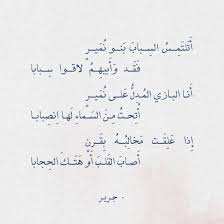 أَتَلتَمِسُ السِبابَ بَنو نُمَيرٍ
فَقَد وَأَبيهِمُ لاقوا سِبابا
أَنا البازي المُدِلُّ عَلى نُمَيرٍ
أُتِحتُ مِنَ السَماءِ لَها اِنصِبابا
إِذا عَلِقَت مَخالِبُهُ بِقَرنٍ
أَصابَ القَلبَ أَو هَتَكَ الحِجابا
- جرير